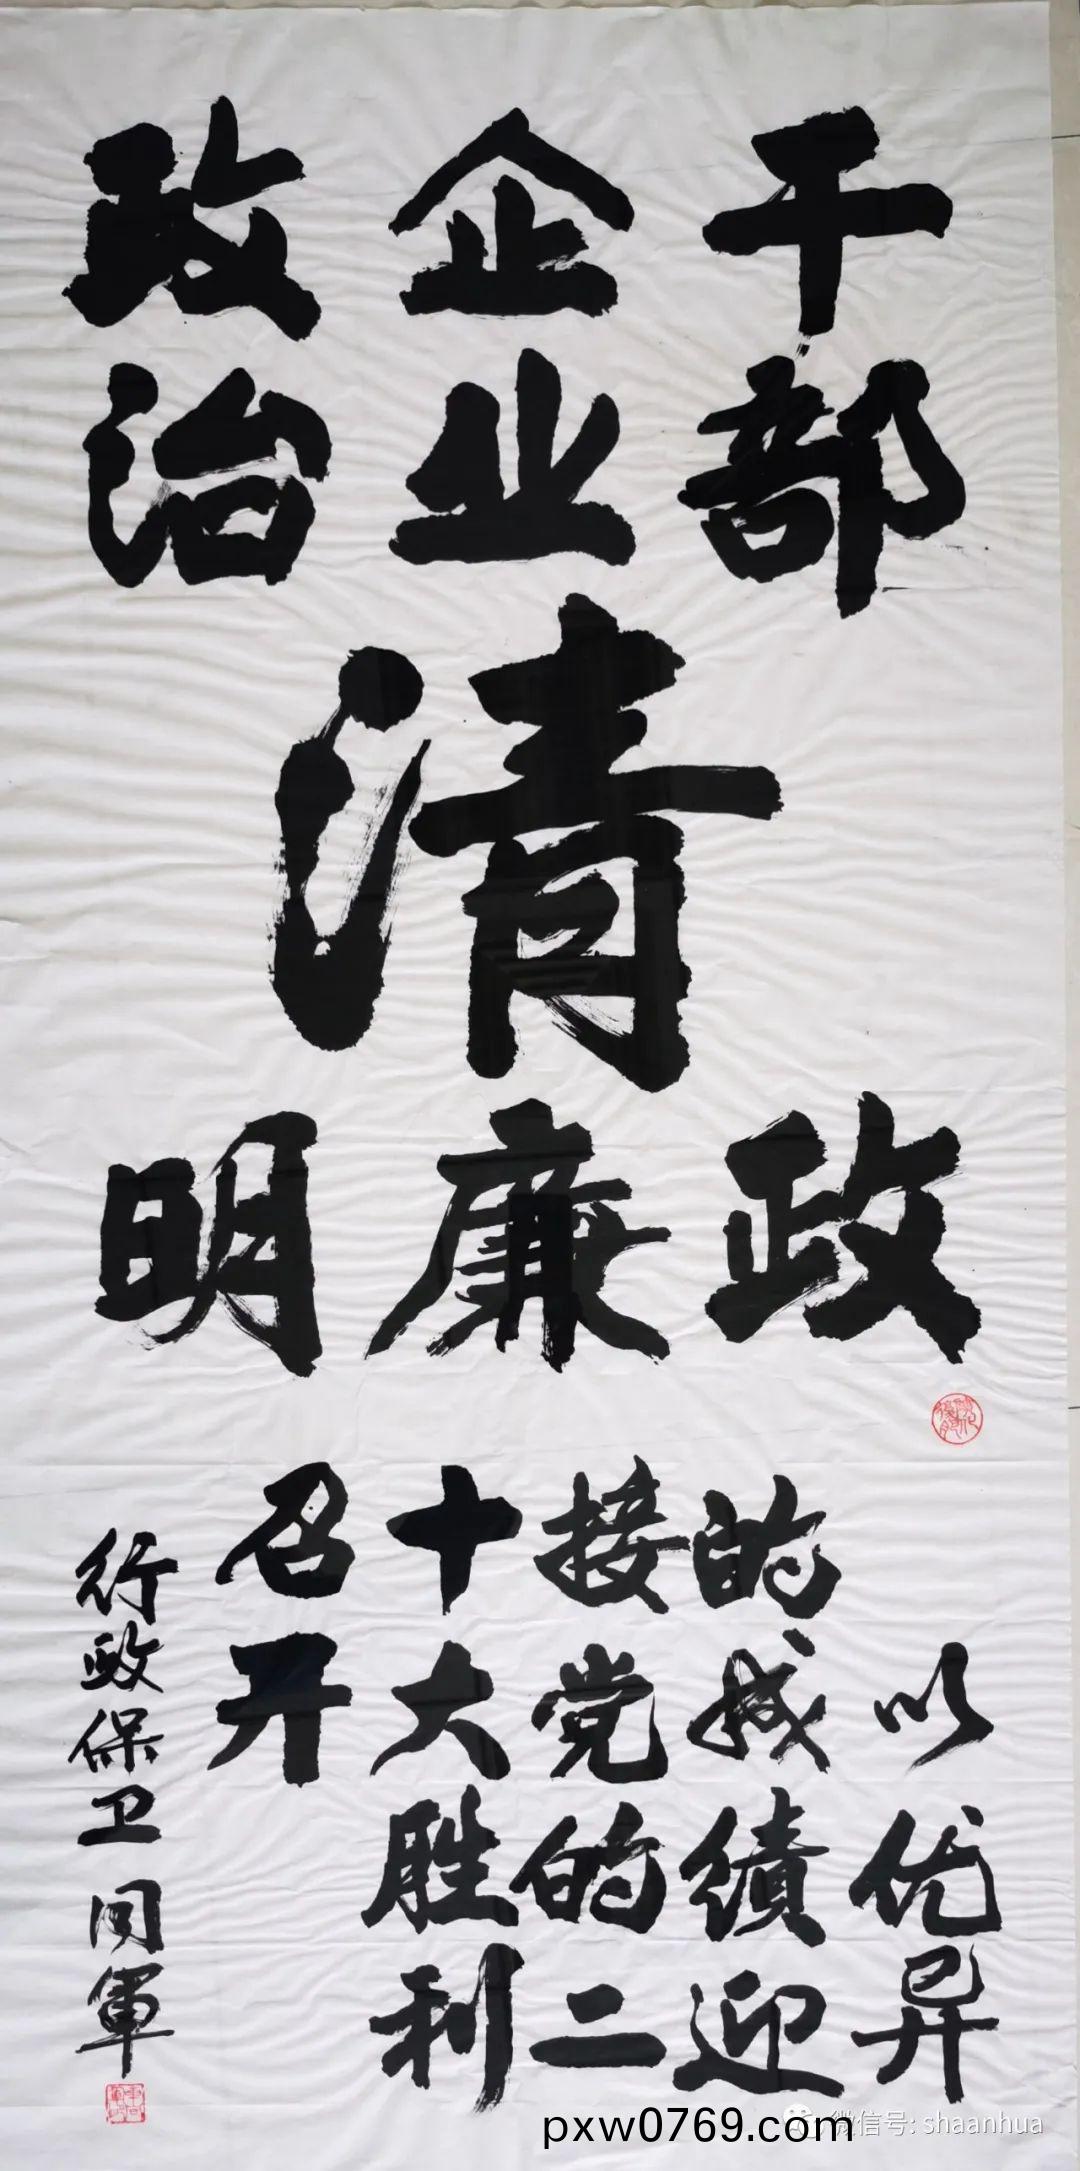 干部
企业
政治
清
政
廉
明
以优异
的成績迎
接党的二
十大胜利
召开
行政保卫 軍
微信号: shaanhua
pxw0769.com